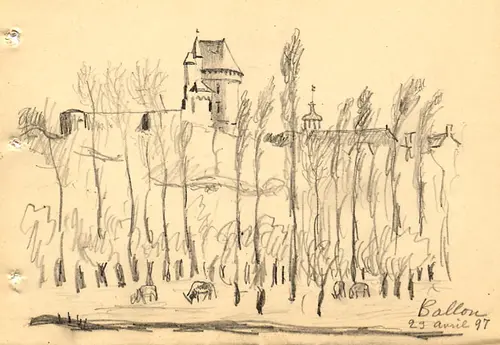 Ballon
23 avril 97